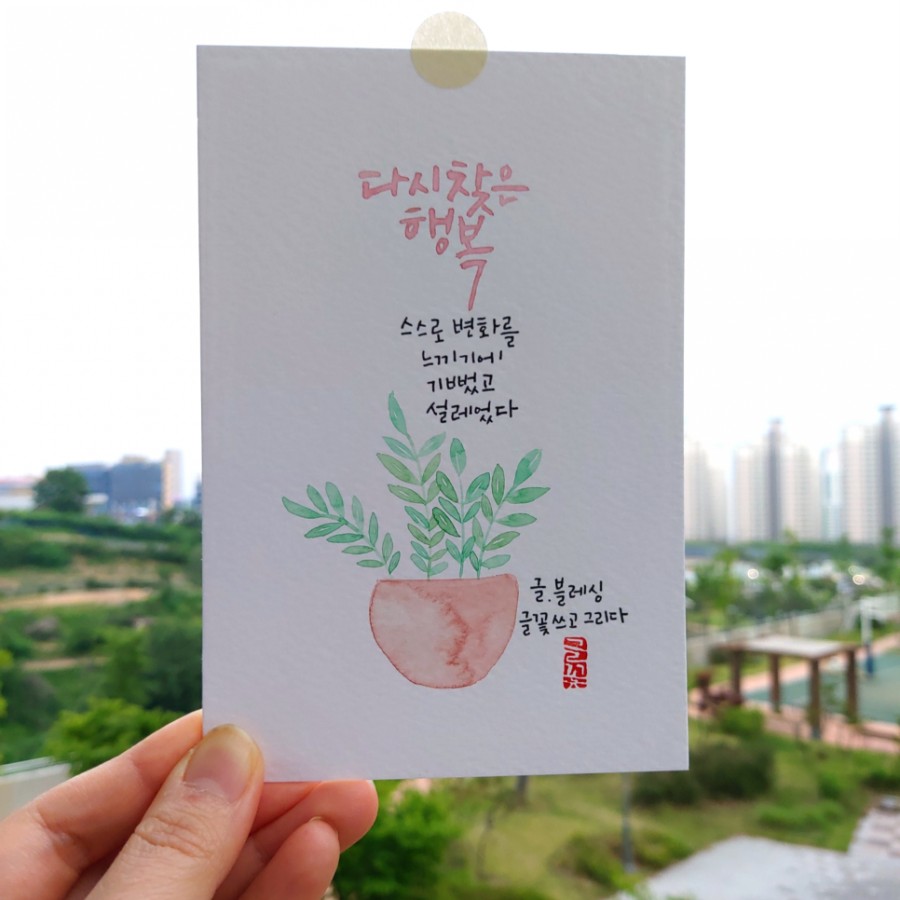 다시찾은
행복
스스로 변화를
느끼기에
기뻤고
설레었다
글.블레싱
글꽃쓰고 그리다
글꽃